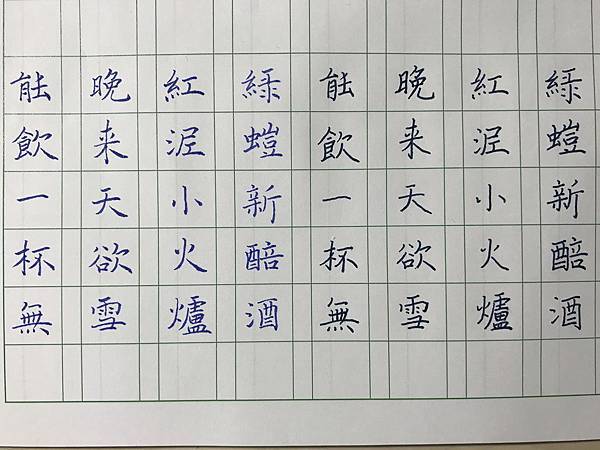 綠螘新醅酒
紅泥小火爐
晚来天欲雪
能飲一杯無
綠螘新醅酒
紅泥小火爐
晚来天欲雪
能飲一杯無